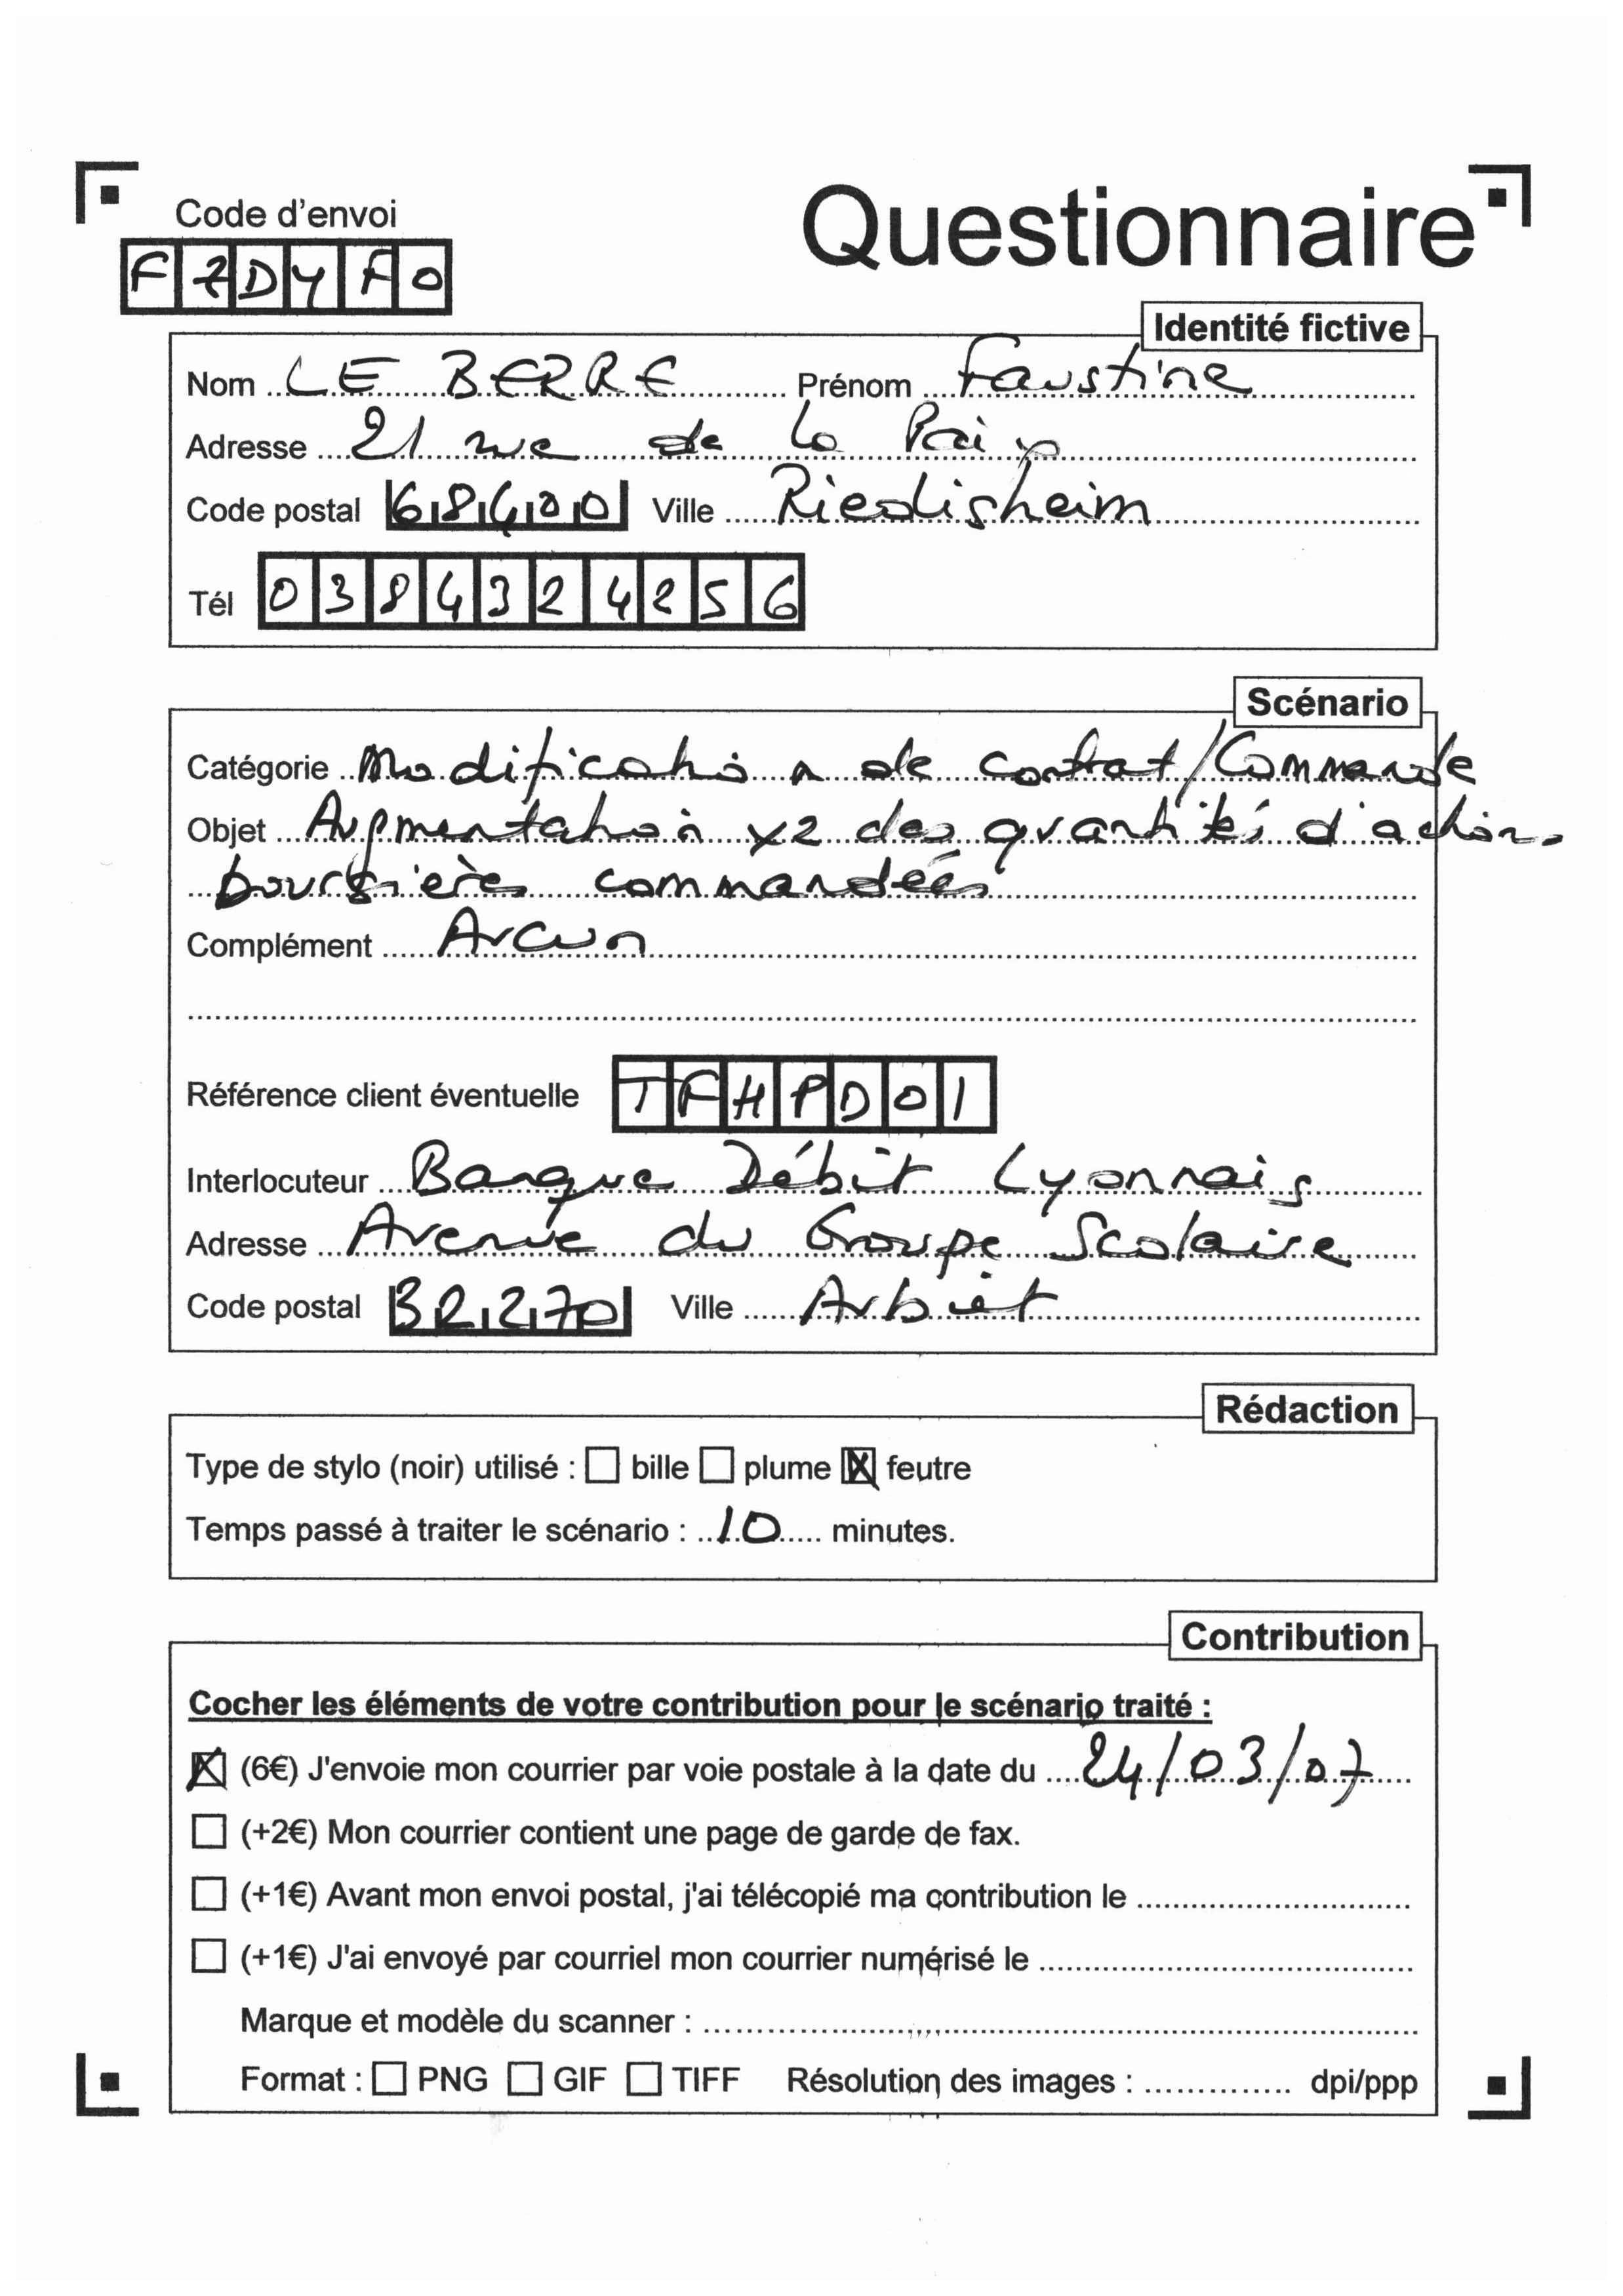 Code d'envoi
Questionnaire
F7DYF0
Identité fictive
Nom LE BERRE Prénom Faustine
Adresse 21 rue de la Paix
Code postal 68400 Ville Riedisheim
Tél 0384324256
Scénario
Catégorie Modification de contrat/Commande
Objet Augmentation x2 des quantités d'actions
boursières commandées
Complément Aucun
Référence client éventuelle TFHPD01
Interlocuteur Banque Débit Lyonnais
Adresse Avenue du Groupe Scolaire
Code postal 32270 Ville
Rédaction
Type de stylo (noir) utilisé : bille plume feutre
Temps passé à traiter le scénario : 10 minutes.
Contribution
Cocher les éléments de votre contribution pour le scénario traité :
(6€) J'envoie mon courrier par voie postale à la date du 24/03/07
(+2€) Mon courrier contient une page de garde de fax.
(+1€) Avant mon envoi postal, j'ai télécopié ma contribution le
(+1€) J'ai envoyé par courriel mon courrier numérisé le
Marque et modèle du scanner :
Format : PNG GIF TIFF Résolution des images : dpi/ppp